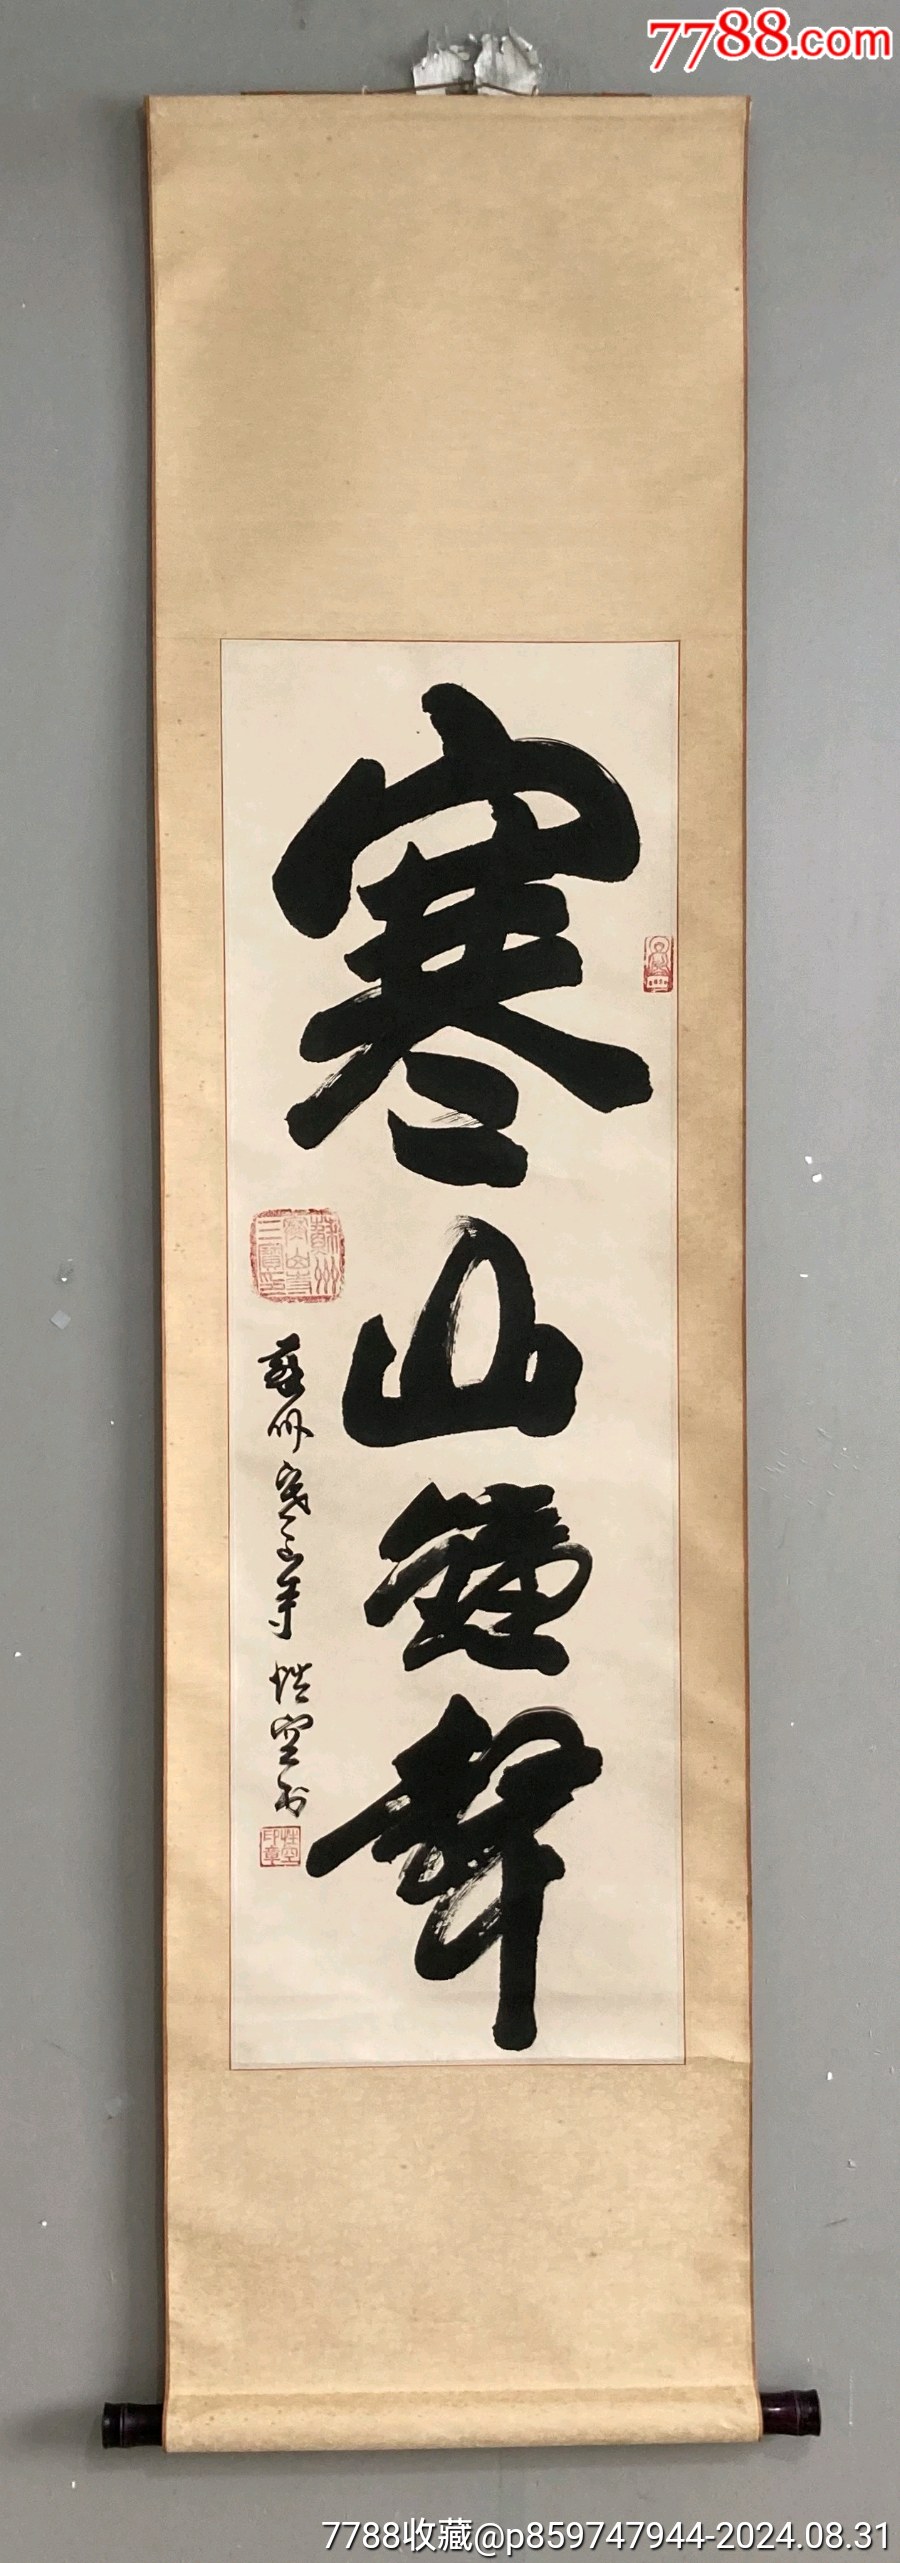 7788.com
寒山鐘聲
蘇州寒山寺 性空书
蘇州
寒山寺
三寶印
性空
印章
7788收藏@p859747944-2024.08.31